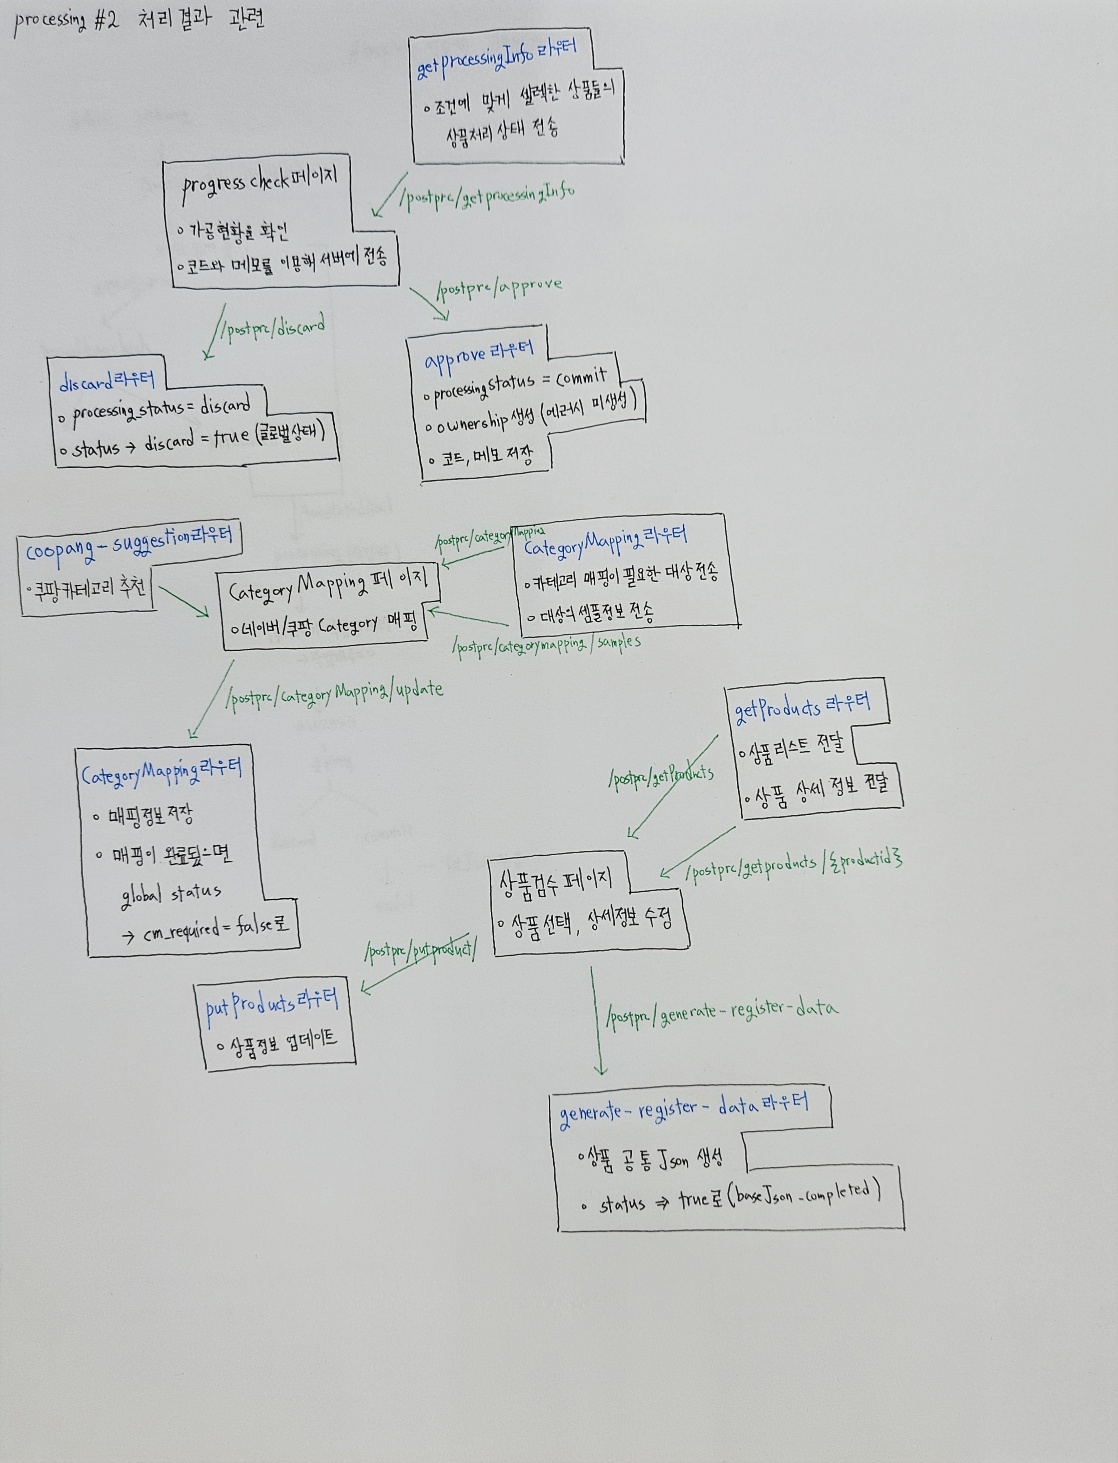 processing #2 처리결과 관련
getprocessingInfo 라우터
◦ 조건에 맞게 셀렉한 상품들의
상품처리상태 전송
/postprc/getprocessingInfo
progress check 페이지
◦ 가공현황을 확인
◦ 코드와 메모를 이용해 서버에 전송
/postprc/approve
/postprc/discard
discard 라우터
◦ processing_status = discard
◦ status → discard = true (글로벌상태)
approve 라우터
◦ processingstatus = commit
◦ ownership 생성 (에러시 미생성)
◦ 코드, 메모 저장
coopang - suggestion 라우터
◦ 쿠팡카테고리 추천
/postprc/categoryMapping
CategoryMapping 라우터
◦ 카테고리 매핑이 필요한 대상 전송
◦ 대상의 샘플정보 전송
Category Mapping 페이지
◦ 네이버/쿠팡 Category 매핑
/postprc/categorymapping/samples
/postprc/CategoryMapping/update
CategoryMapping 라우터
◦ 매핑정보 저장
◦ 매핑이 완료됬으면
global status
→ cm_required = false로
getProducts 라우터
◦ 상품리스트 전달
◦ 상품 상세 정보 전달
/postprc/getProducts
/postprc/getproducts/{productid}
상품검수 페이지
◦ 상품선택, 상세정보 수정
/postprc/putproduct/
putProducts 라우터
◦ 상품정보 업데이트
/postprc/generate-register-data
generate - register - data 라우터
◦ 상품 공통 Json 생성
◦ status ⇒ true로 (baseJson-completed)